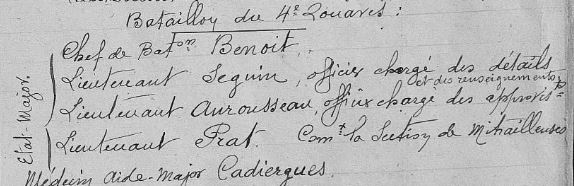 Bataillon du 4e Zouaves :
Chef de Baton Benoit.
Lieutenant Seguin, officier chargé des détails
et des renseignements
Lieutenant Aurousseau, officier chargé des approvis.ts
Etat-Major.
Lieutenant Prat. Comt la Section de Mitrailleuses
Médecin Aide-Major Cadiergues.